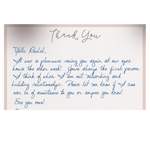 Thank You
Hello Rachel,
It was a pleasure seeing you again at our open
house the other week! You're always the first person
I think of when I am out networking and
building relationships. Please let me know if I can
ever be of assistance to you or anyone you know!
See you soon!